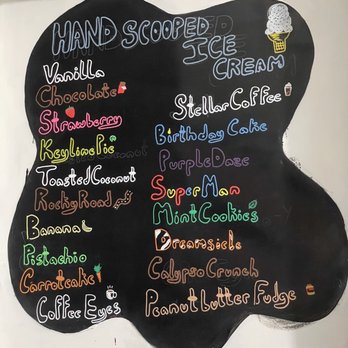 HAND SCOOPED
ICE
CREAM
Vanilla
Chocolate
Strawberry
KeylimePie
ToastedCoconut
RockyRoad
Banana
Pistachio
Carrotcake
Coffee Eyes
StellarCoffee
Birthday Cake
PurpleDaze
SuperMan
MintCookies
Dreamsicle
CalypsoCrunch
Peanutbutter Fudge